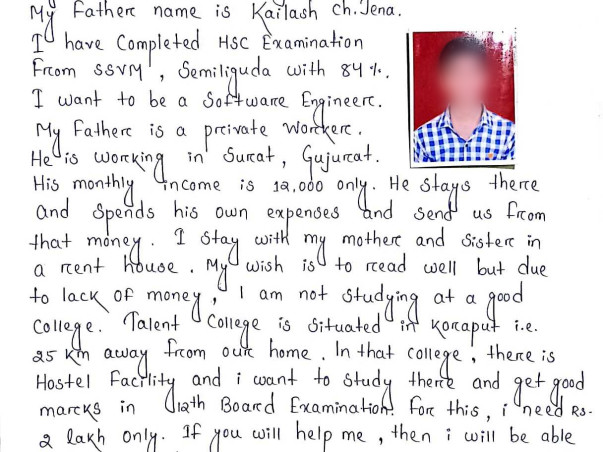 My Father name is Kailash Ch. Jena.
I have Completed HSC Examination
From SSVM, Semiliguda with 84%.
I want to be a Software Engineer.
My Father is a private Worker.
He is working in Surat, Gujurat.
His monthly income is 12,000 only. He stays there
and spends his own expenses and send us from
that money. I stay with my mother and Sister in
a rent house. My wish is to read well but due
to lack of money, I am not studying at a good
College. Talent College is situated in Koraput i.e.
25 Km away from our home. In that college, there is
Hostel Facility and i want to study there and get good
marks in 12th Board Examination. For this, i need Rs.
2 lakh only. If you will help me, then i will be able